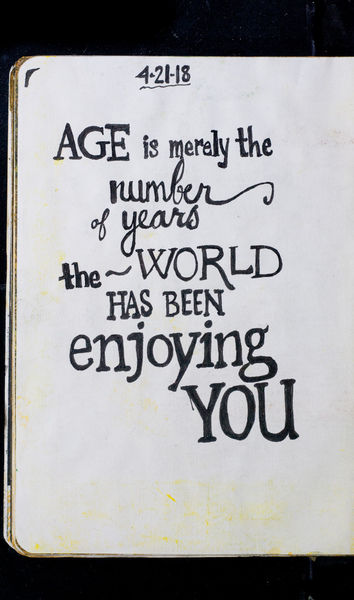 4-21-18
AGE is merely the
number
of years
the ~ WORLD
HAS BEEN
enjoying
YOU